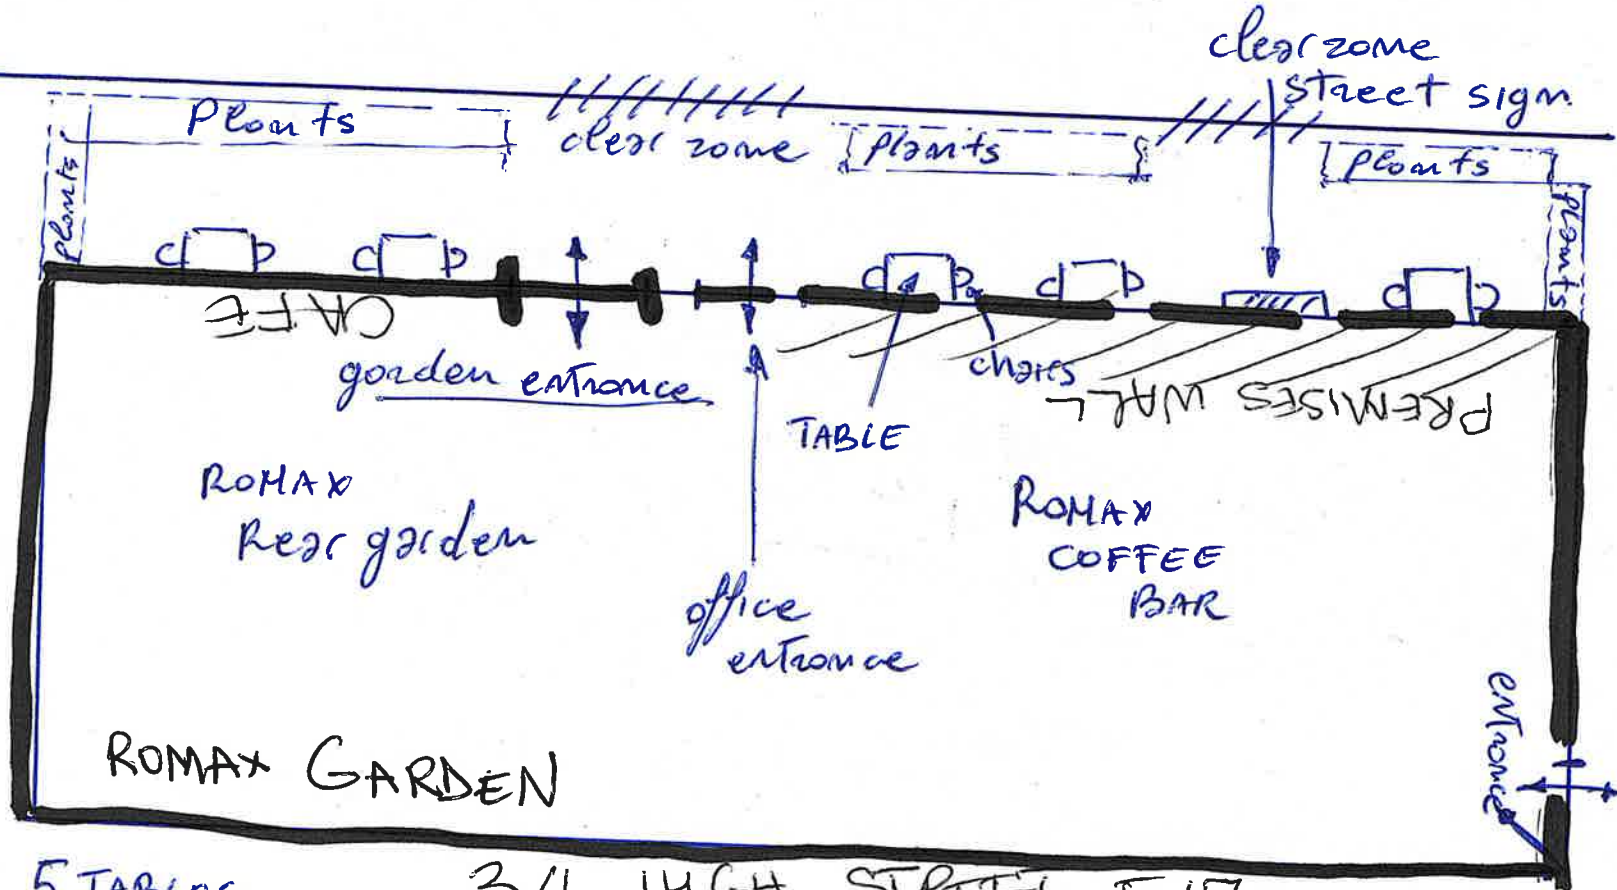 clear zone
street sign
Plants
clear zone
Plants
Plants
Plants
Plants
CAFE
garden entrance
chairs
PREMISES WALL
TABLE
ROMAX
Rear garden
ROMAX
COFFEE
BAR
office
entrance
entrance
ROMAX GARDEN
5 TABLES
HIGH STREET